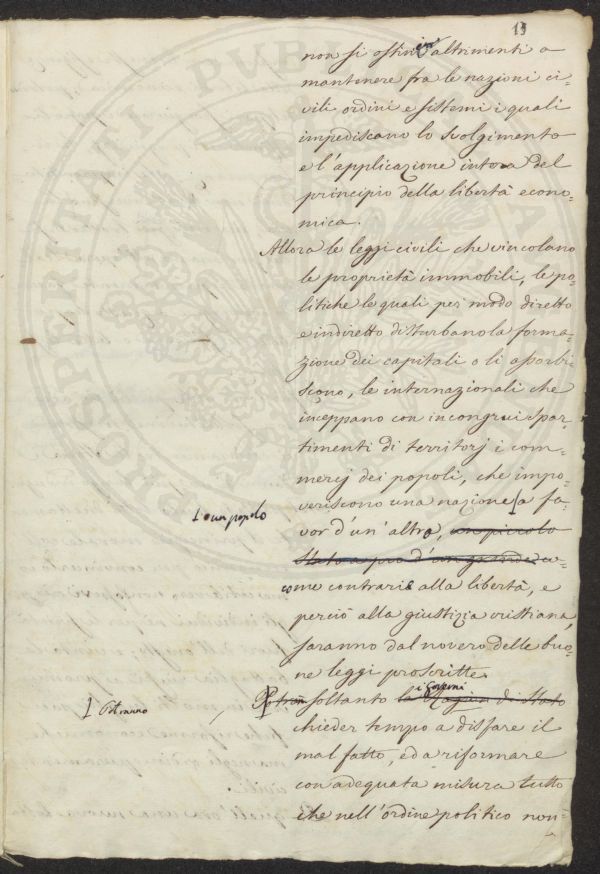 19
non si ostini altrimenti a
mantenere fra le nazioni ci-
vili ordini e sistemi i quali
impediscano lo svolgimento
e l'applicazione intera del
principio della libertà econo-
mica.
Allora le leggi civili che vincolano
le proprietà immobili, le po-
litiche le quali per modo diretto
e indiretto disturbano la forma-
zione dei capitali o li assorbi-
scono, le internazionali che
inceppano con incongrui spar-
timenti di territorj i com-
mercj dei popoli, che impo-
veriscono una nazione a fa-
o un popolo
vor d'un'altro, un piccolo
Stato a pro d'un grande, co-
me contrarie alla libertà, e
perciò alla giustizia cristiana,
saranno dal novero delle buo-
ne leggi proscritte.
i Governi
Potranno
soltanto la Ragion di Stato
chieder tempo a disfare il
mal fatto, ed a riformare
con adequata misura tutto
che nell'ordine politico non-
PROSPERITATI PUBLICAE